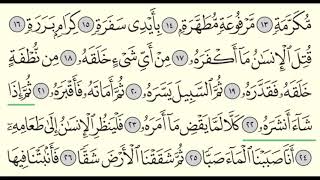 مُّكَرَّمَةٍ ١٣ مَّرْفُوعَةٍ مُّطَهَّرَةٍۭ ١٤ بِأَيْدِى سَفَرَةٍ ١٥ كِرَامٍۭ بَرَرَةٍ ١٦
قُتِلَ ٱلْإِنسَٰنُ مَآ أَكْفَرَهُۥ ١٧ مِنْ أَىِّ شَىْءٍ خَلَقَهُۥ ١٨ مِن نُّطْفَةٍ
خَلَقَهُۥ فَقَدَّرَهُۥ ١٩ ثُمَّ ٱلسَّبِيلَ يَسَّرَهُۥ ٢٠ ثُمَّ أَمَاتَهُۥ فَأَقْبَرَهُۥ ٢١ ثُمَّ إِذَا
شَآءَ أَنشَرَهُۥ ٢٢ كَلَّا لَمَّا يَقْضِ مَآ أَمَرَهُۥ ٢٣ فَلْيَنظُرِ ٱلْإِنسَٰنُ إِلَىٰ طَعَامِهِۦٓ
٢٤ أَنَّا صَبَبْنَا ٱلْمَآءَ صَبًّا ٢٥ ثُمَّ شَقَقْنَا ٱلْأَرْضَ شَقًّا ٢٦ فَأَنۢبَتْنَا فِيهَا